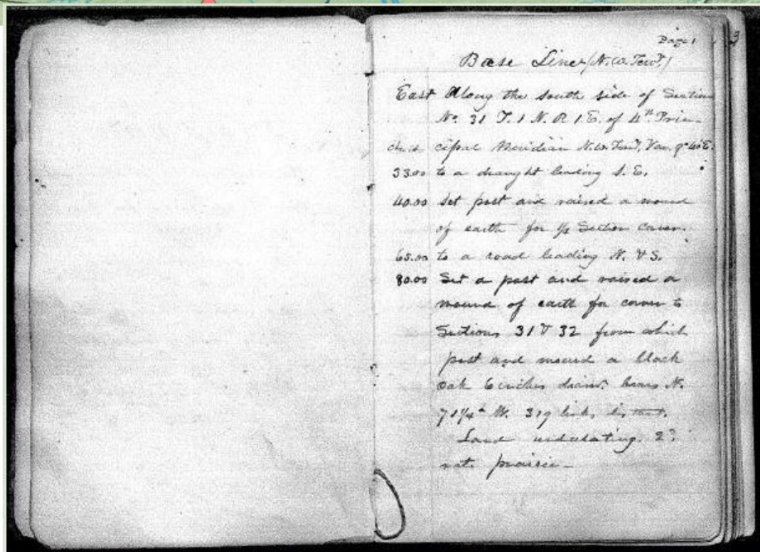 Page 1
3
Base Line (N.W. Ter.)
East Along the south side of Section
No. 31 T. 1 N. R 1 E. of 4th Prin-
cipal Meridian N.W. Ter. Var. 9° 40' E.
33.00 to a draught leading S. E.
40.00 Set post and raised a mound
of earth for ¼ Section corner.
65.00 to a road leading N. & S.
80.00 Set a post and raised a
mound of earth for corner to
Sections 31 & 32 from which
post and mound a black
oak 6 inches diam. bears N.
71¼° W. 319 links distant.
Land undulating 2d
rate prairie -